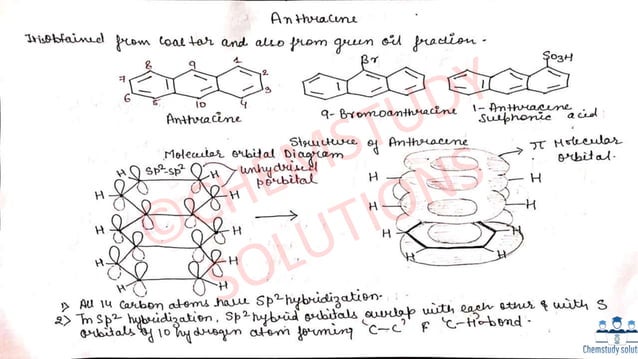 Anthracine
It is obtained from Coal tar and also from green oil fraction.
8 9 1
7 2
6 3
5 10 4
Anthracine
Br
9-Bromoanthracine
SO3H
1-Anthracene
Sulphonic acid
Structure of Anthracene
Molecular orbital Diagram
Sp2-Sp2
unhydrised
p orbital
π Molecular
orbital.
H H
H H
H H
H H
H H
H H
H H
H H
H H
1) All 14 Carbon atoms have Sp2 hybridization.
2) In Sp2 hybridization, Sp2 hybrid orbitals overlap with each other & with S
orbitals of 10 hydrogen atom forming 'C-C' & 'C-H' bond.
©CHEMSTUDY
SOLUTIONS
Chemstudy solut